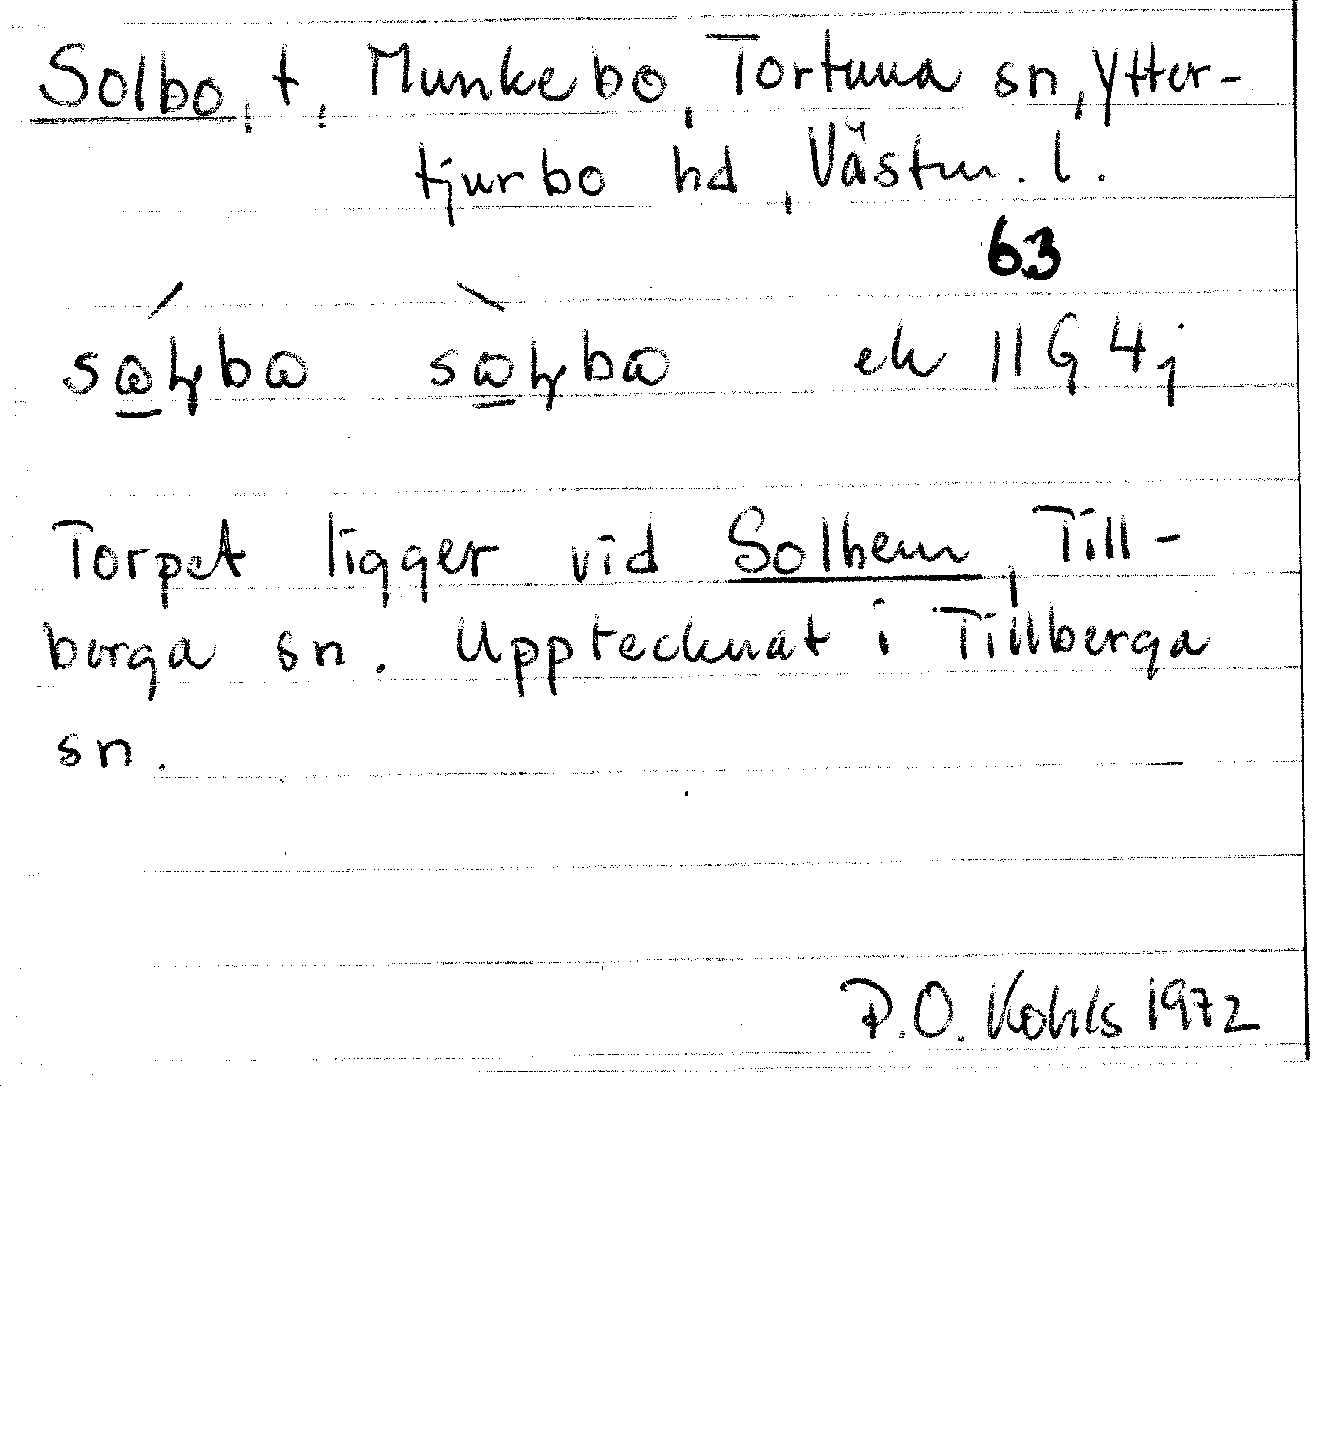 Solbo, t, Munkebo, Tortuna sn, Ytter-
tjurbo hd, Västm. l.
63
ek 11G 4j
Torpet ligger vid Solhem, Till-
berga sn. Upptecknat i Tillberga
sn.
P.O. Kohls 1972